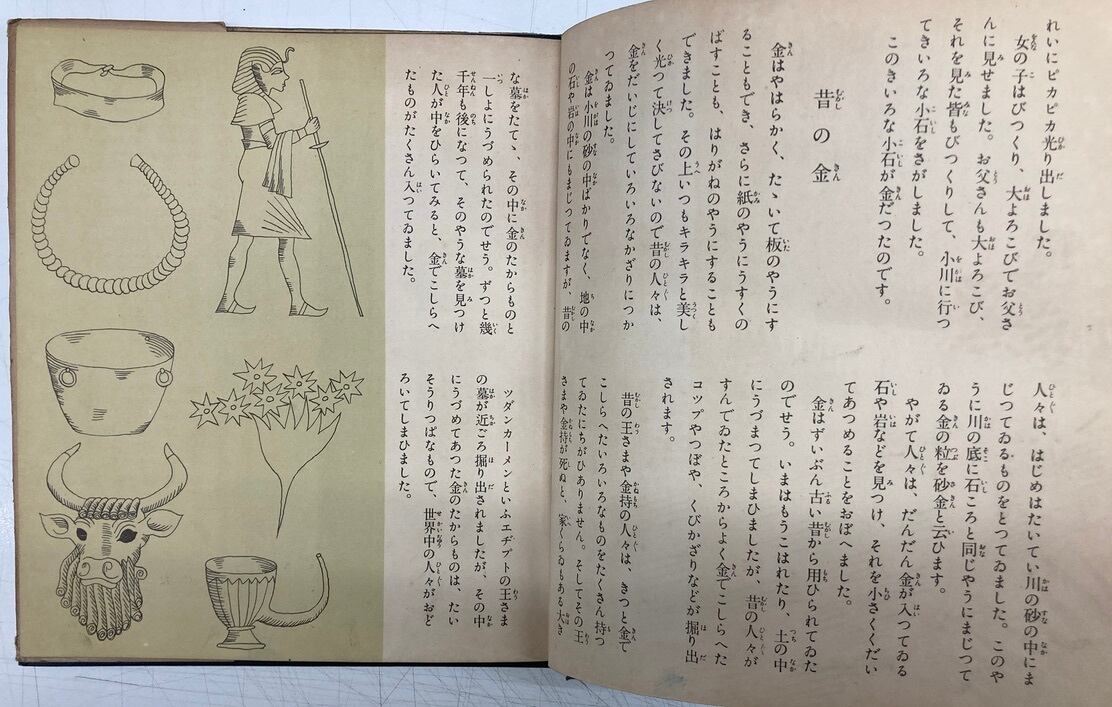 れいにピカピカ光り出しました。
女の子はびつくり、大よろこびでお父さ
んに見せました。お父さんも大よろこび、
それを見た皆もびつくりして、小川に行つ
てきいろな小石をさがしました。
このきいろな小石が金だつたのです。
昔の金
金はやはらかく、たゝいて板のやうにす
ることもでき、さらに紙のやうにうすくの
ばすことも、はりがねのやうにすることも
できました。その上いつもキラキラと美し
く光つて決してさびないので昔の人々は、
金をだいじにしていろいろなかざりにつか
つてゐました。
金は小川の砂の中ばかりでなく、地の中
の石や岩の中にもまじつてゐますが、昔の
人々は、はじめはたいてい川の砂の中にま
じつてゐるものをとつてゐました。このや
うに川の底に石ころと同じやうにまじつて
ゐる金の粒を砂金と云ひます。
やがて人々は、だんだん金が入つてゐる
石や岩などを見つけ、それを小さくくだい
てあつめることをおぼへました。
金はずいぶん古い昔から用ひられてゐた
のでせう。いまはもうこはれたり、土の中
にうづまつてしまひましたが、昔の人々が
すんでゐたところからよく金でこしらへた
コップやつぼや、くびかざりなどが掘り出
されます。
昔の王さまや金持の人々は、きつと金で
こしらへたいろいろなものをたくさん持つ
てゐたにちがひありません。そしてその王
さまや金持が死ぬと、家くらゐもある大き
な墓をたてゝ、その中に金のたからものと
一しよにうづめられたのでせう。ずつと幾
千年も後になつて、そのやうな墓を見つけ
た人が中をひらいてみると、金でこしらへ
たものがたくさん入つてゐました。
ツダンカーメンといふエヂプトの王さま
の墓が近ごろ掘り出されましたが、その中
にうづめてあつた金のたからものは、たい
そうりつぱなもので、世界中の人々がおど
ろいてしまひました。